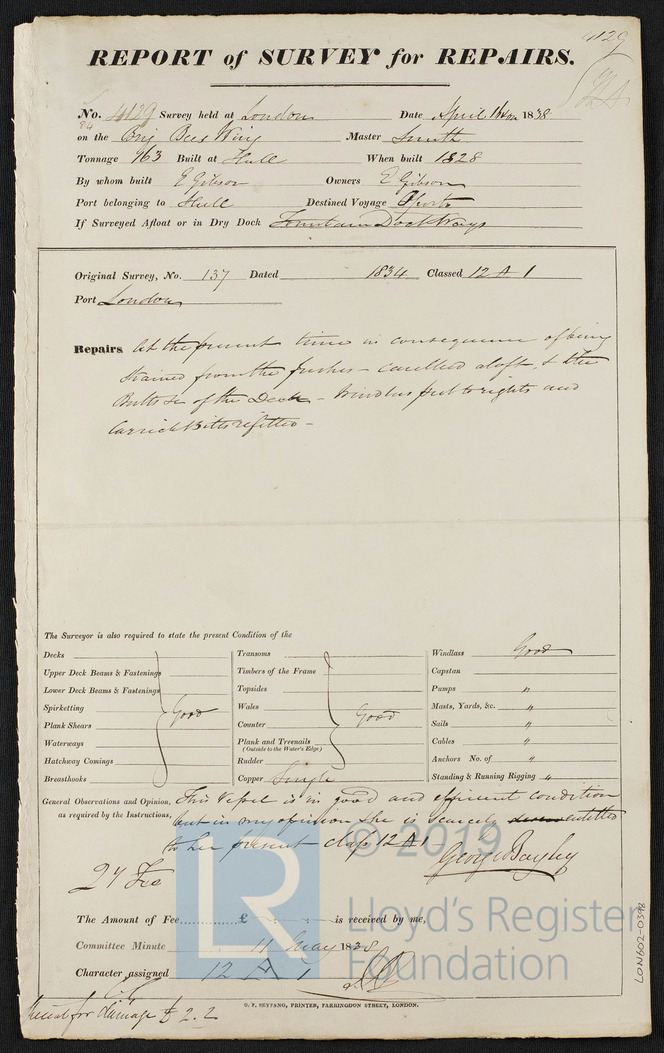 4129
REPORT of SURVEY for REPAIRS.
No. 4129 Survey held at London Date April 1838
on the Brig Bees Wing Master Smith
Tonnage 963 Built at Hull When built 1828
By whom built E Gibson Owners E Gibson
Port belonging to Hull Destined Voyage Oporto
If Surveyed Afloat or in Dry Dock Fountain Dock Ways
Original Survey, No. 137 Dated 1834 Classed 12 A 1
Port London
Repairs At the present time in consequence of being
strained from the caulked aloft, & the
Butts &c of the Deck - Windlass put to rights and
Carrick Bitts refitted -
The Surveyor is also required to state the present Condition of the
Decks
Upper Deck Beams & Fastenings
Lower Deck Beams & Fastenings
Spirketting
Plank Shears
Waterways
Hatchway Comings
Breasthooks
Good
Transoms
Timbers of the Frame
Topsides
Wales
Counter
Plank and Treenails
(Outside to the Water's Edge)
Rudder
Good
Copper Single
Windlass Good
Capstan
Pumps "
Masts, Yards, &c. "
Sails "
Cables "
Anchors No. of "
Standing & Running Rigging "
General Observations and Opinion, This Vessel is in good and efficient condition
as required by the Instructions, but in my opinion she is scarcely entitled
to her present class 12 A 1
George Bayley
27 Feb
The Amount of Fee £ is received by me,
Committee Minute 11 May 1838
Character assigned 12 A 1
G. F. SEYFANG, PRINTER, FARRINGDON STREET, LONDON.
for damage £ 2.2
LON602-0398
© 2019
LR
Lloyd's Register
Foundation